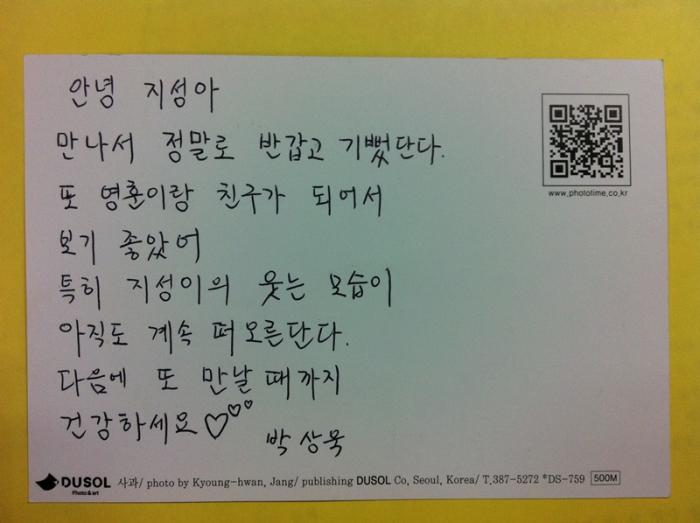 안녕 지성아
만나서 정말로 반갑고 기뻤단다.
또 영훈이랑 친구가 되어서
보기 좋았어
특히 지성이의 웃는 모습이
아직도 계속 떠오른단다.
다음에 또 만날 때까지
건강하세요♡♡♡
박상욱
www.phototime.co.kr
DUSOL
Photo & art
사과/ photo by Kyoung-hwan, Jang/ publishing DUSOL Co, Seoul, Korea/ T.387-5272 *DS-759 500M